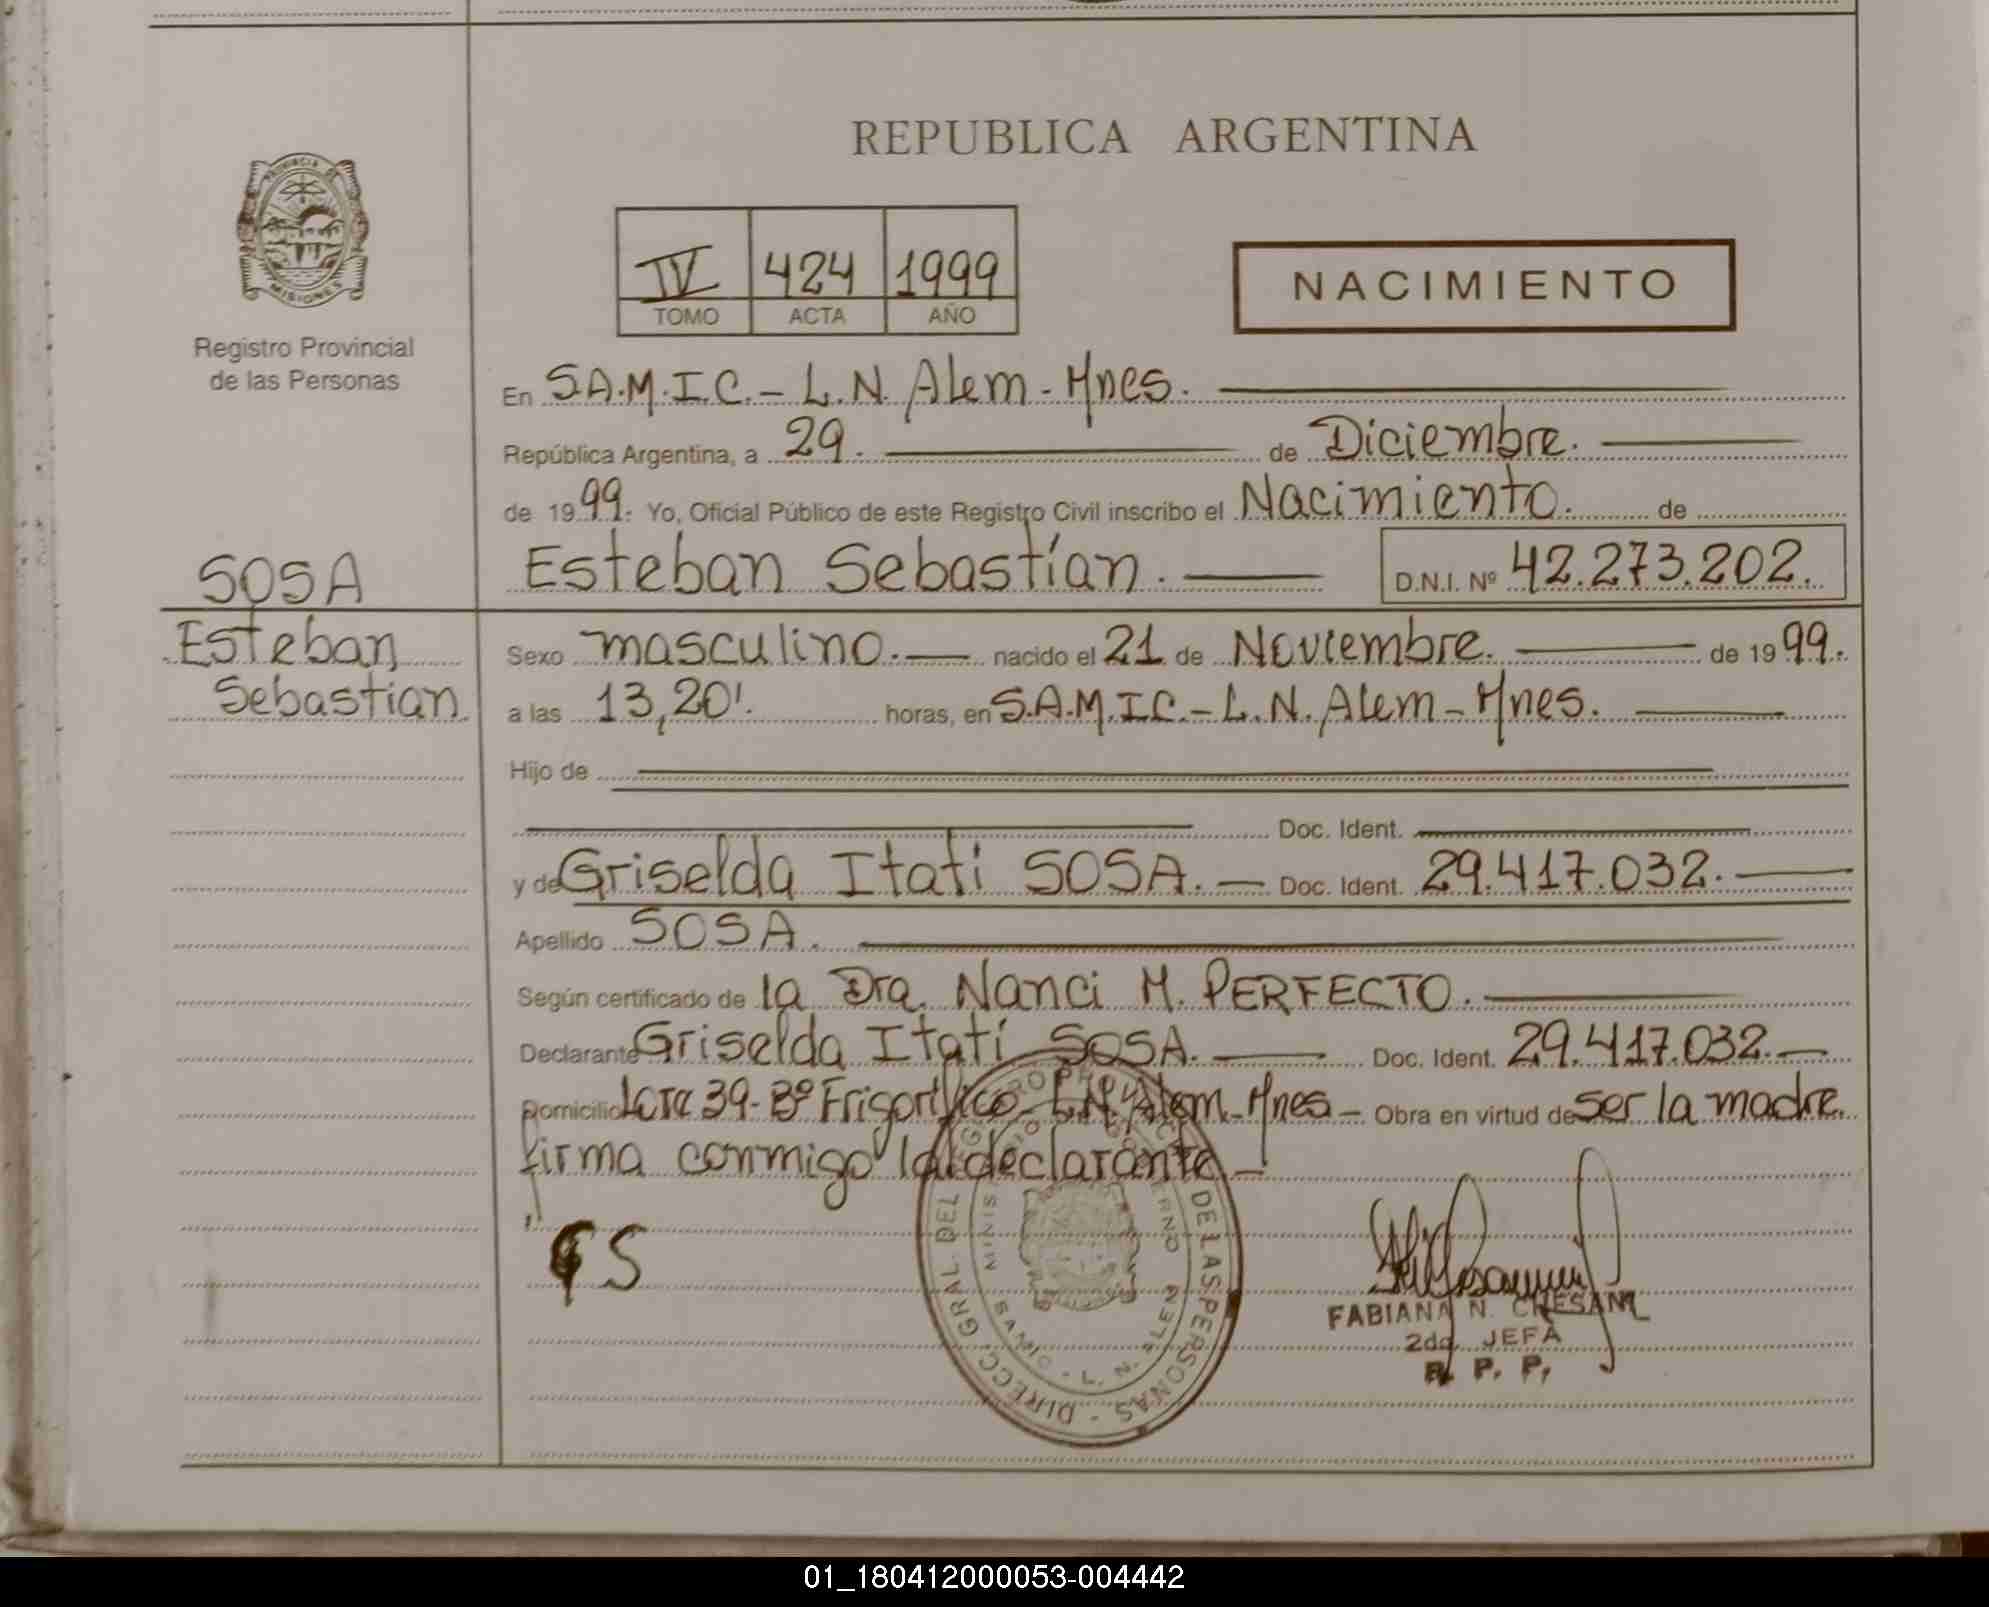 REPUBLICA ARGENTINA
PROVINCIA DE
MISIONES
Registro Provincial
de las Personas
IV 424 1999
TOMO ACTA AÑO
NACIMIENTO
En S.A.M.I.C.- L.N. Alem - Mnes.
República Argentina, a 29. de Diciembre.
de 1999. Yo, Oficial Público de este Registro Civil inscribo el Nacimiento. de
Esteban Sebastían. D.N.I. Nº 42.273.202.
SOSA
Esteban
Sebastian
Sexo masculino. nacido el 21 de Noviembre. de 1999.
a las 13,20'. horas, en S.A.M.I.C.- L.N. Alem - Mnes.
Hijo de
Doc. Ident.
y de Griselda Itatí SOSA. Doc. Ident. 29.417.032.
Apellido SOSA.
Según certificado de la Dra. Nanci M. PERFECTO.
Declarante Griselda Itatí SOSA. Doc. Ident. 29.417.032.
Domicilio Lote 39- Bº Frigorífico- L.N. Alem- Mnes - Obra en virtud de ser la madre
firma conmigo la declarante -
GS
DIRECC. GRAL. DEL REGISTRO DE LAS PERSONAS -
FABIANA N. CHESANI
2da. JEFA
R. P. P.
01_180412000053-004442